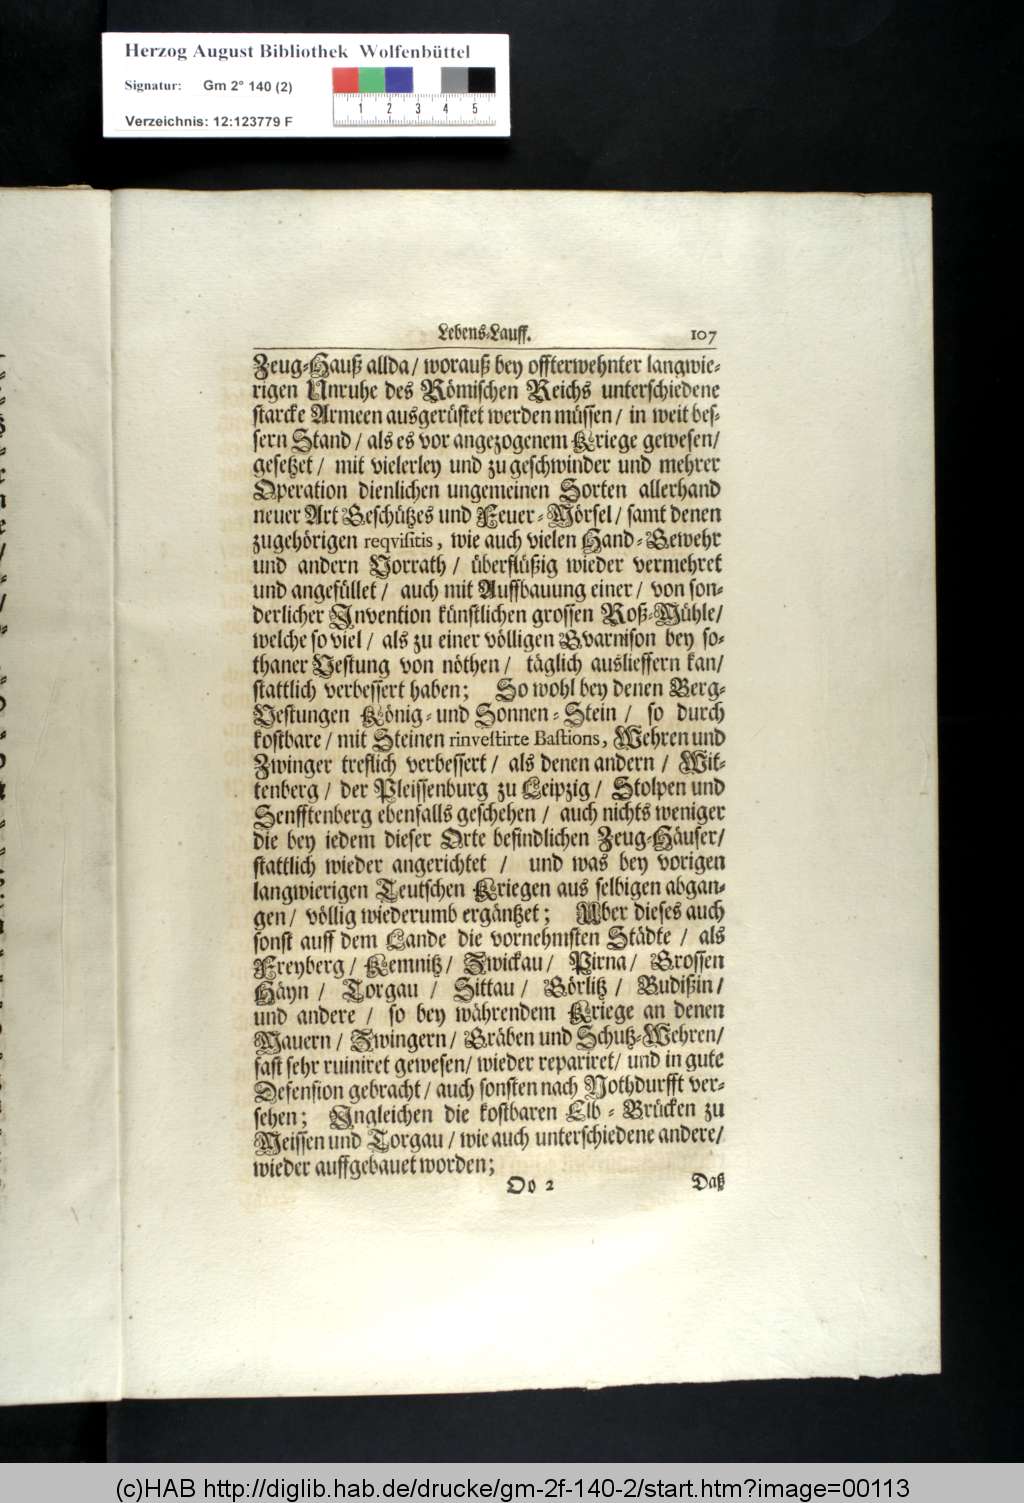 Herzog August Bibliothek Wolfenbüttel
Signatur: Gm 2° 140 (2)
1 2 3 4 5
Verzeichnis: 12:123779 F
Lebens-Lauff. 107
Zeug-Hauß allda / worauß bey offterwehnter langwie-
rigen Unruhe des Römischen Reichs unterschiedene
starcke Armeen ausgerüstet werden müssen / in weit bes-
sern Stand / als es vor angezogenem Kriege gewesen/
gesetzet / mit vielerley und zu geschwinder und mehrer
Operation dienlichen ungemeinen Sorten allerhand
neuer Art Geschützes und Feuer-Mörsel / samt denen
zugehörigen reqvisitis, wie auch vielen Hand-Gewehr
und andern Vorrath / überflüßig wieder vermehret
und angefüllet / auch mit Auffbauung einer / von son-
derlicher Invention künstlichen grossen Roß-Mühle/
welche so viel / als zu einer völligen Gvarnison bey so-
thaner Vestung von nöthen / täglich auslieffern kan/
stattlich verbessert haben; So wohl bey denen Berg-
Vestungen König-und Sonnen-Stein / so durch
kostbare / mit Steinen rinvestirte Bastions, Wehren und
Zwinger treflich verbessert / als denen andern / Wit-
tenberg / der Pleissenburg zu Leipzig / Stolpen und
Senfftenberg ebenfalls geschehen / auch nichts weniger
die bey iedem dieser Orte befindlichen Zeug-Häuser/
stattlich wieder angerichtet / und was bey vorigen
langwierigen Teutschen Kriegen aus selbigen abgan-
gen / völlig wiederumb ergäntzet; Uber dieses auch
sonst auff dem Lande die vornehmsten Städte / als
Freyberg / Kemnitz / Zwickau / Pirna / Grossen
Häyn / Torgau / Sittau / Görlitz / Budißin /
und andere / so bey währendem Kriege an denen
Mauern / Zwingern / Gräben und Schutz-Wehren/
fast sehr ruiniret gewesen / wieder repariret / und in gute
Defension gebracht / auch sonsten nach Nothdurfft ver-
sehen; Ingleichen die kostbaren Elb-Brücken zu
Meissen und Torgau / wie auch unterschiedene andere/
wieder auffgebauet worden;
Oo 2 Daß
(c)HAB http://diglib.hab.de/drucke/gm-2f-140-2/start.htm?image=00113